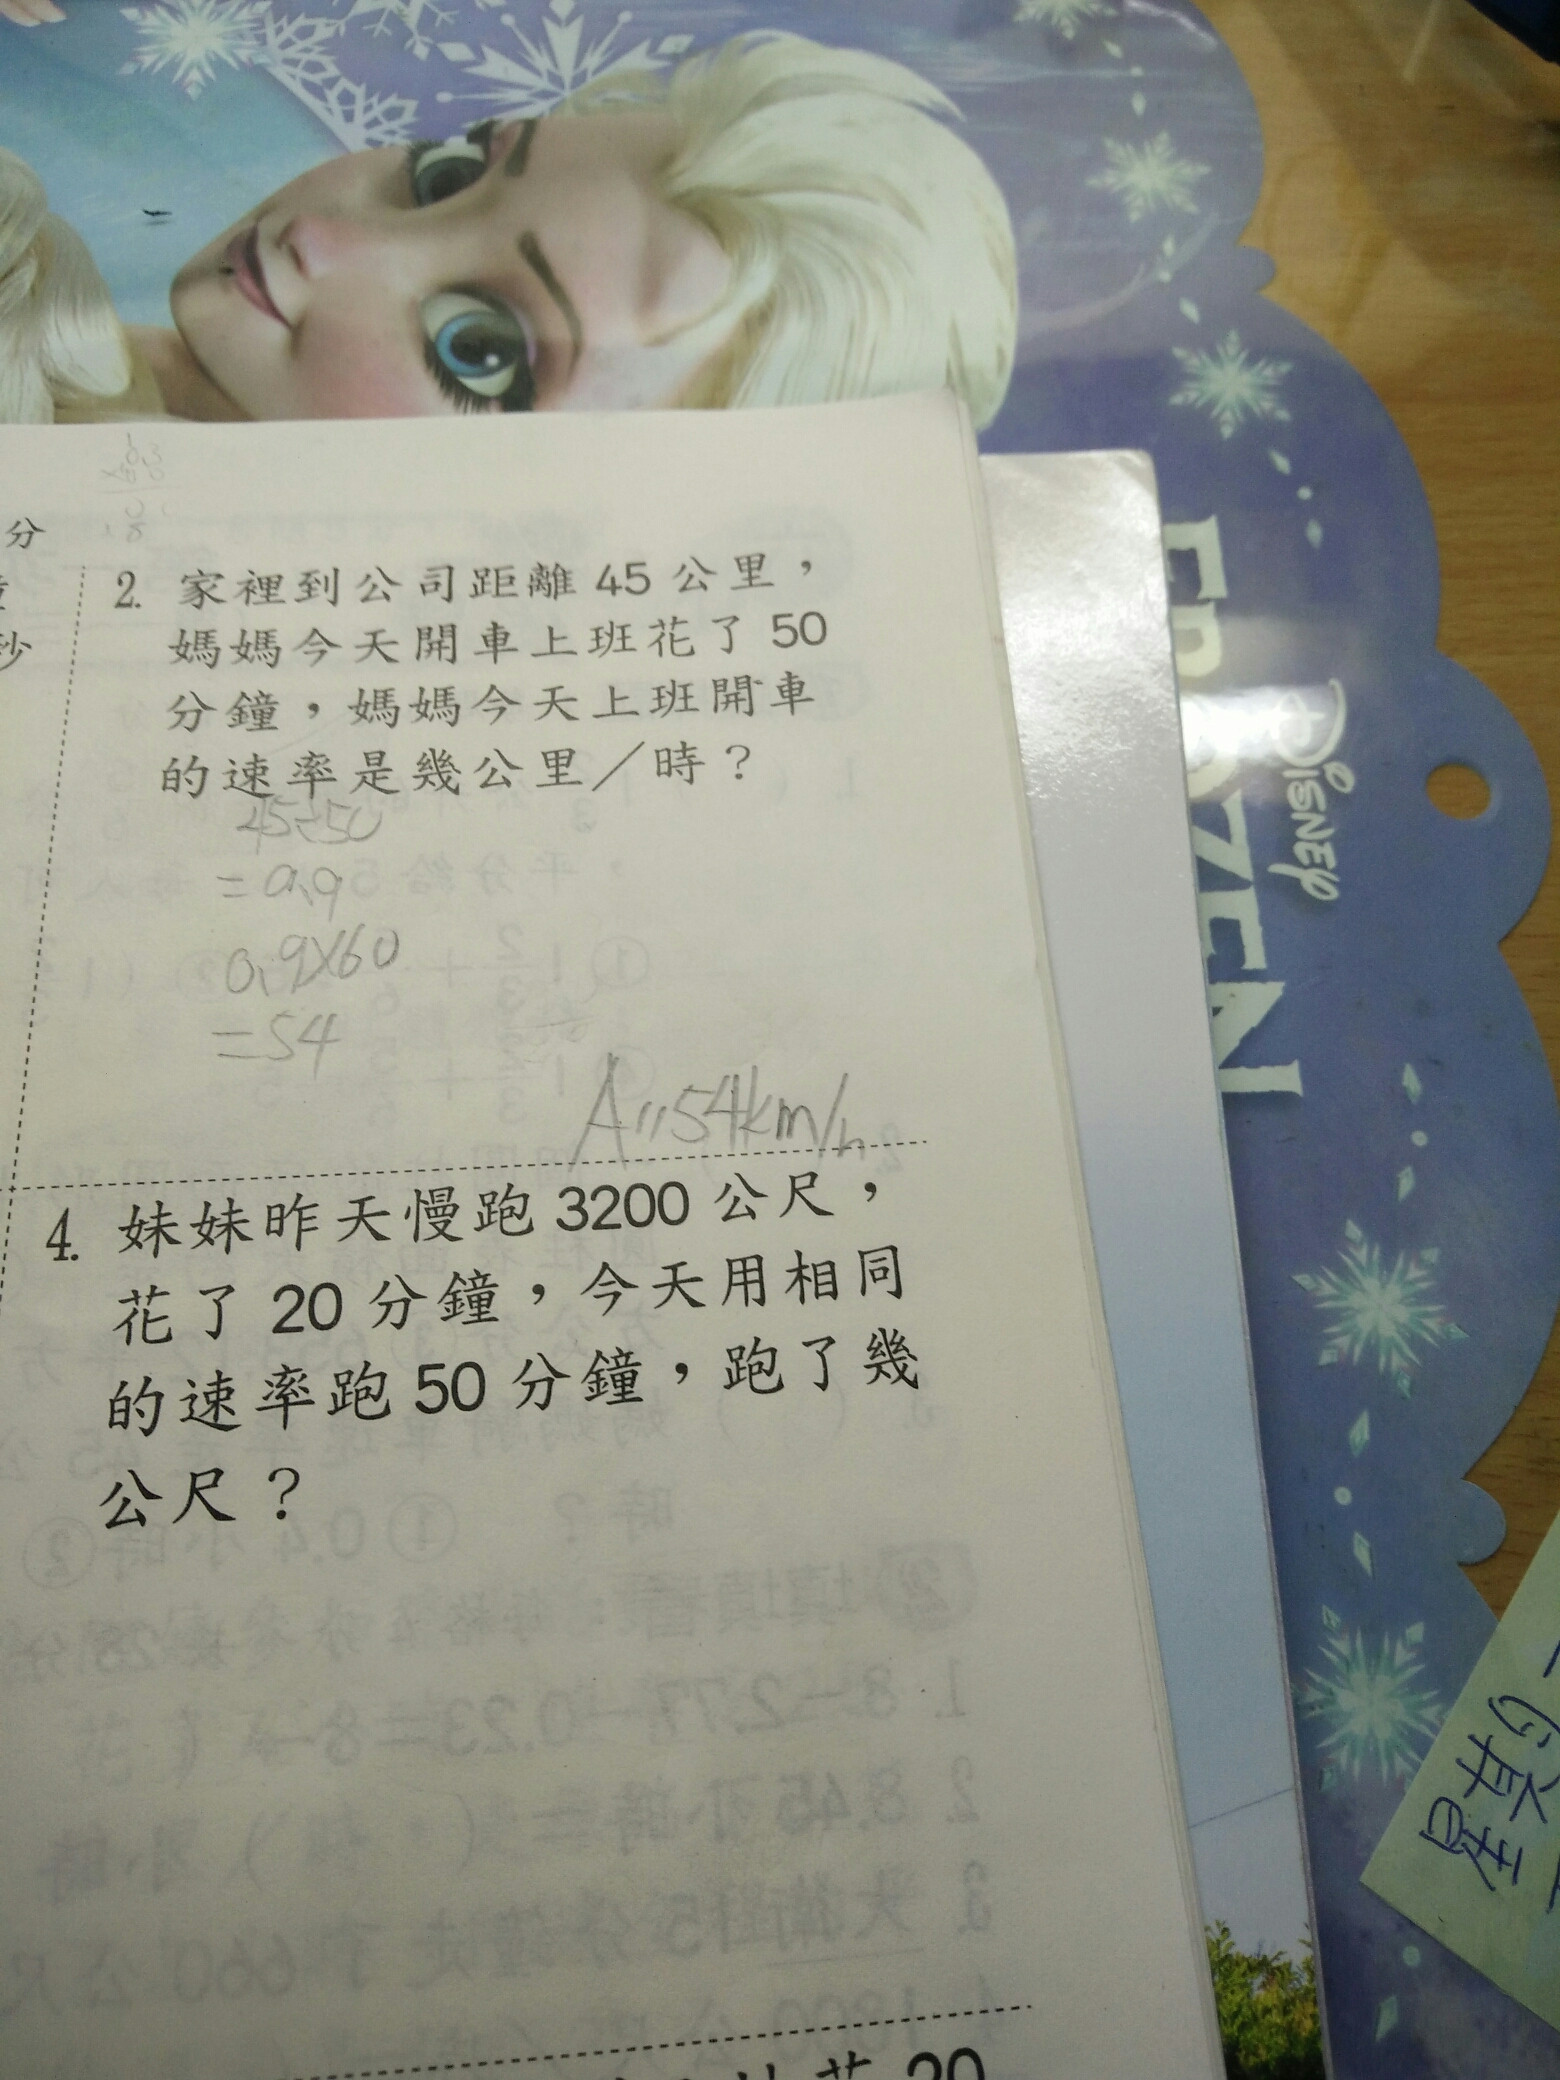 分
秒
2. 家裡到公司距離 45 公里，
媽媽今天開車上班花了 50
分鐘，媽媽今天上班開車
的速率是幾公里／時？
45÷50
=0.9
0.9×60
=54
A:54km/h
4. 妹妹昨天慢跑 3200 公尺，
花了 20 分鐘，今天用相同
的速率跑 50 分鐘，跑了幾
公尺？
花 20
DISNEY
FROZEN